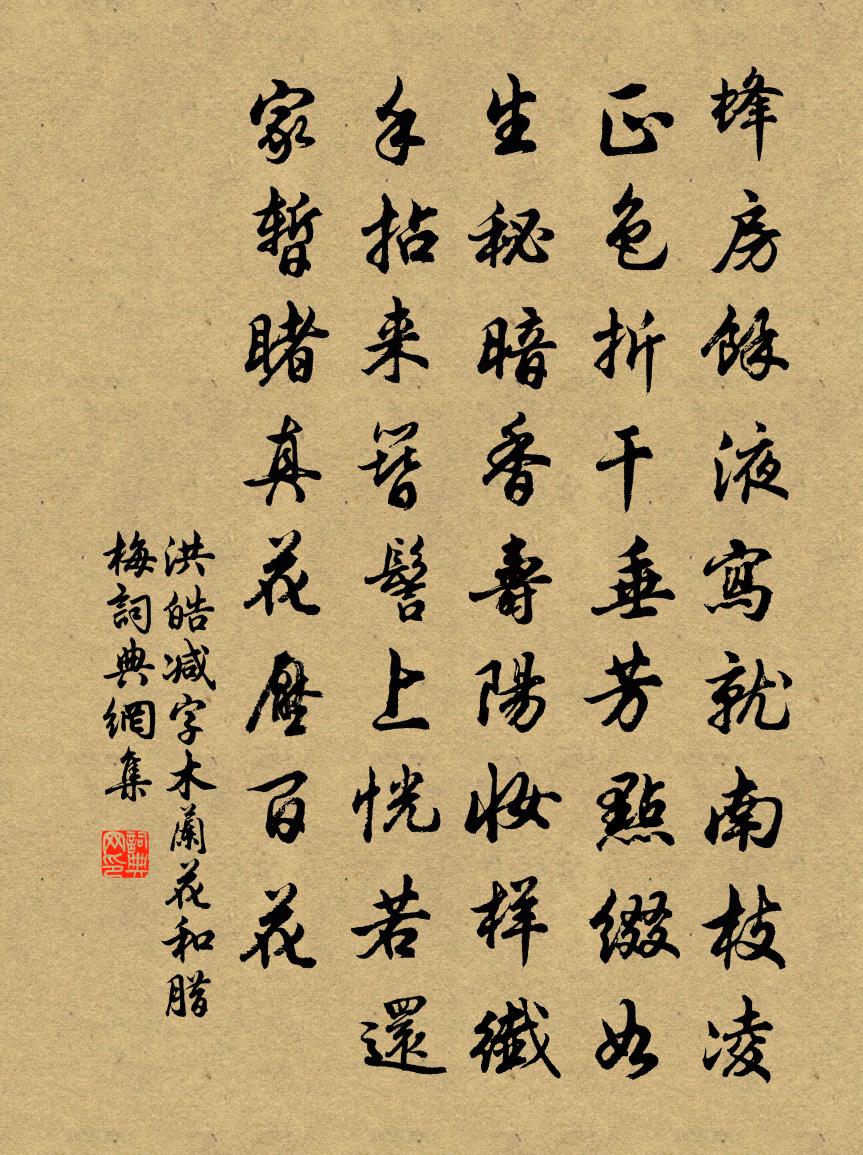 蜂房餘液寫就南枝凌
正色折干垂芳點綴如
生秘暗香壽陽妝样纖
手拈来簪髻上恍若還
家暫睹真花壓百花
洪皓减字木蘭花和腊
梅詞典網集
詞典
网印